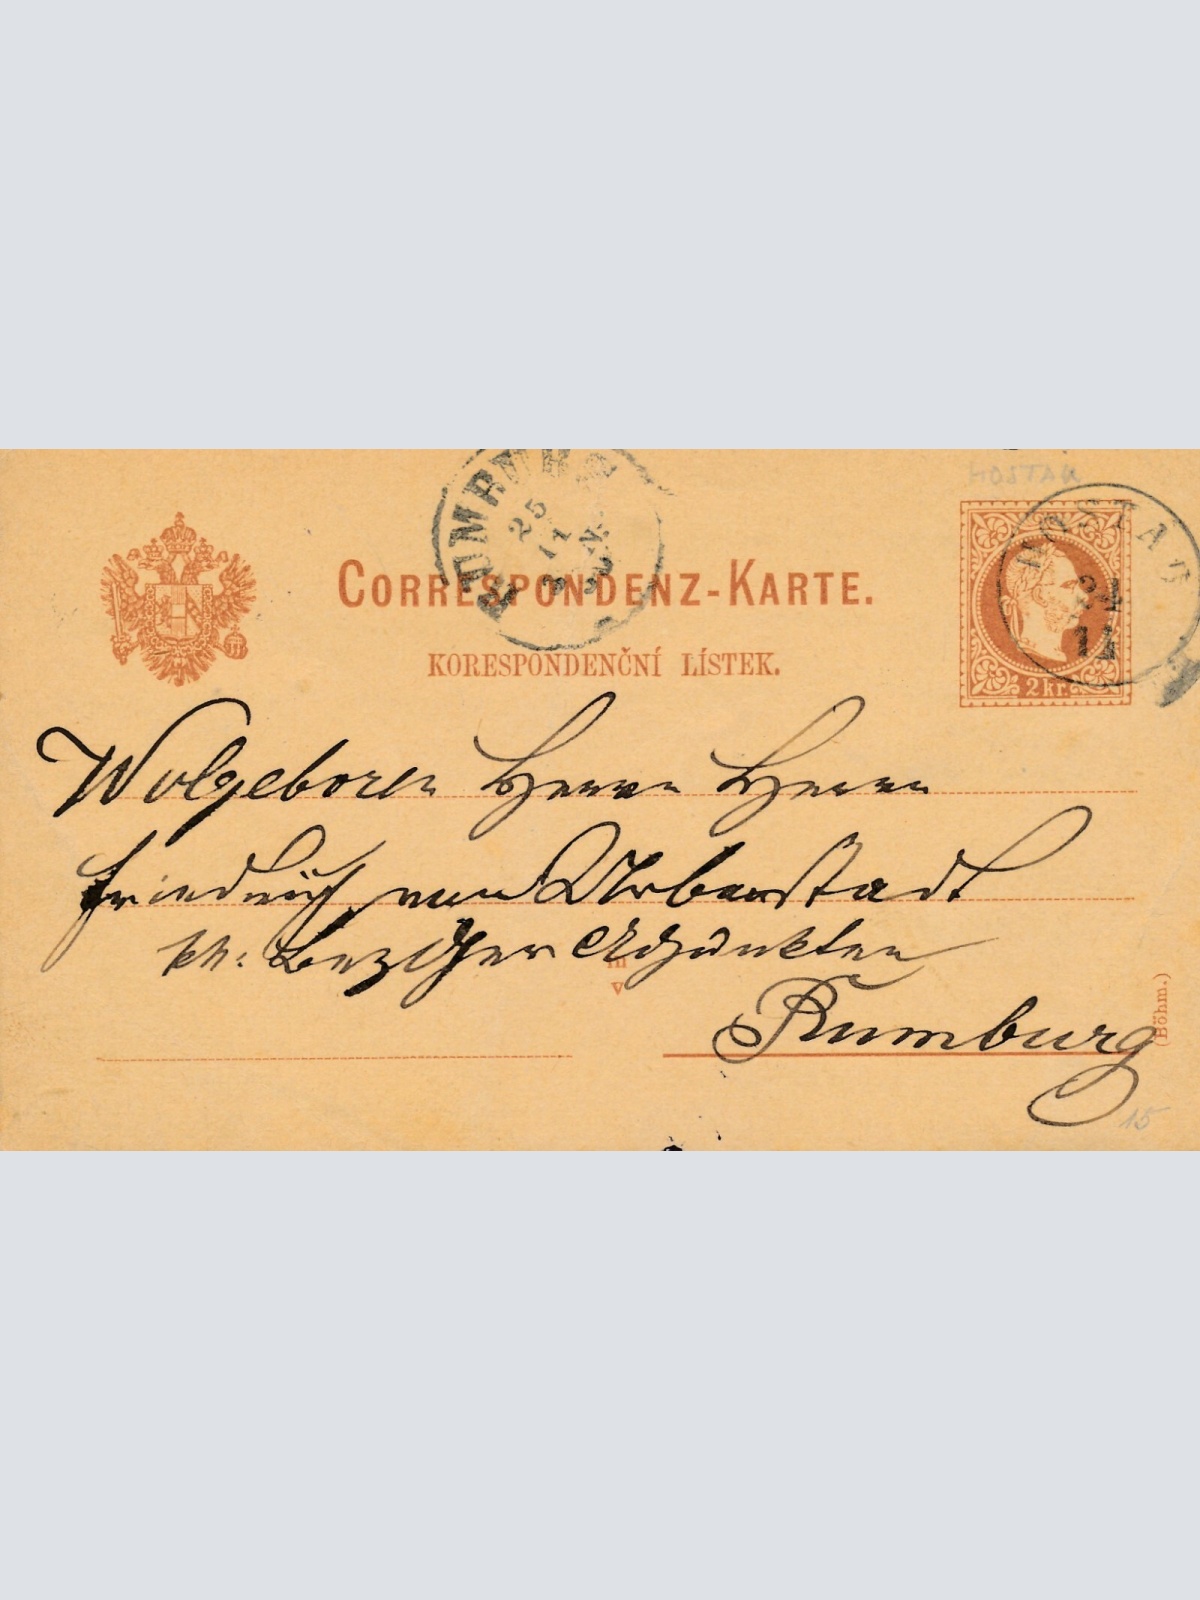 HOSTAU
RUMBURG
25
11
HOSTAU
24
11
CORRESPONDENZ-KARTE.
KORESPONDENČNÍ LÍSTEK.
2 kr.
Wolgeboren Herrn Herrn
Friedrich von Urbanstadt
kk: Bezirks Adjunkten
in
v
Rumburg
(Böhm.)
15